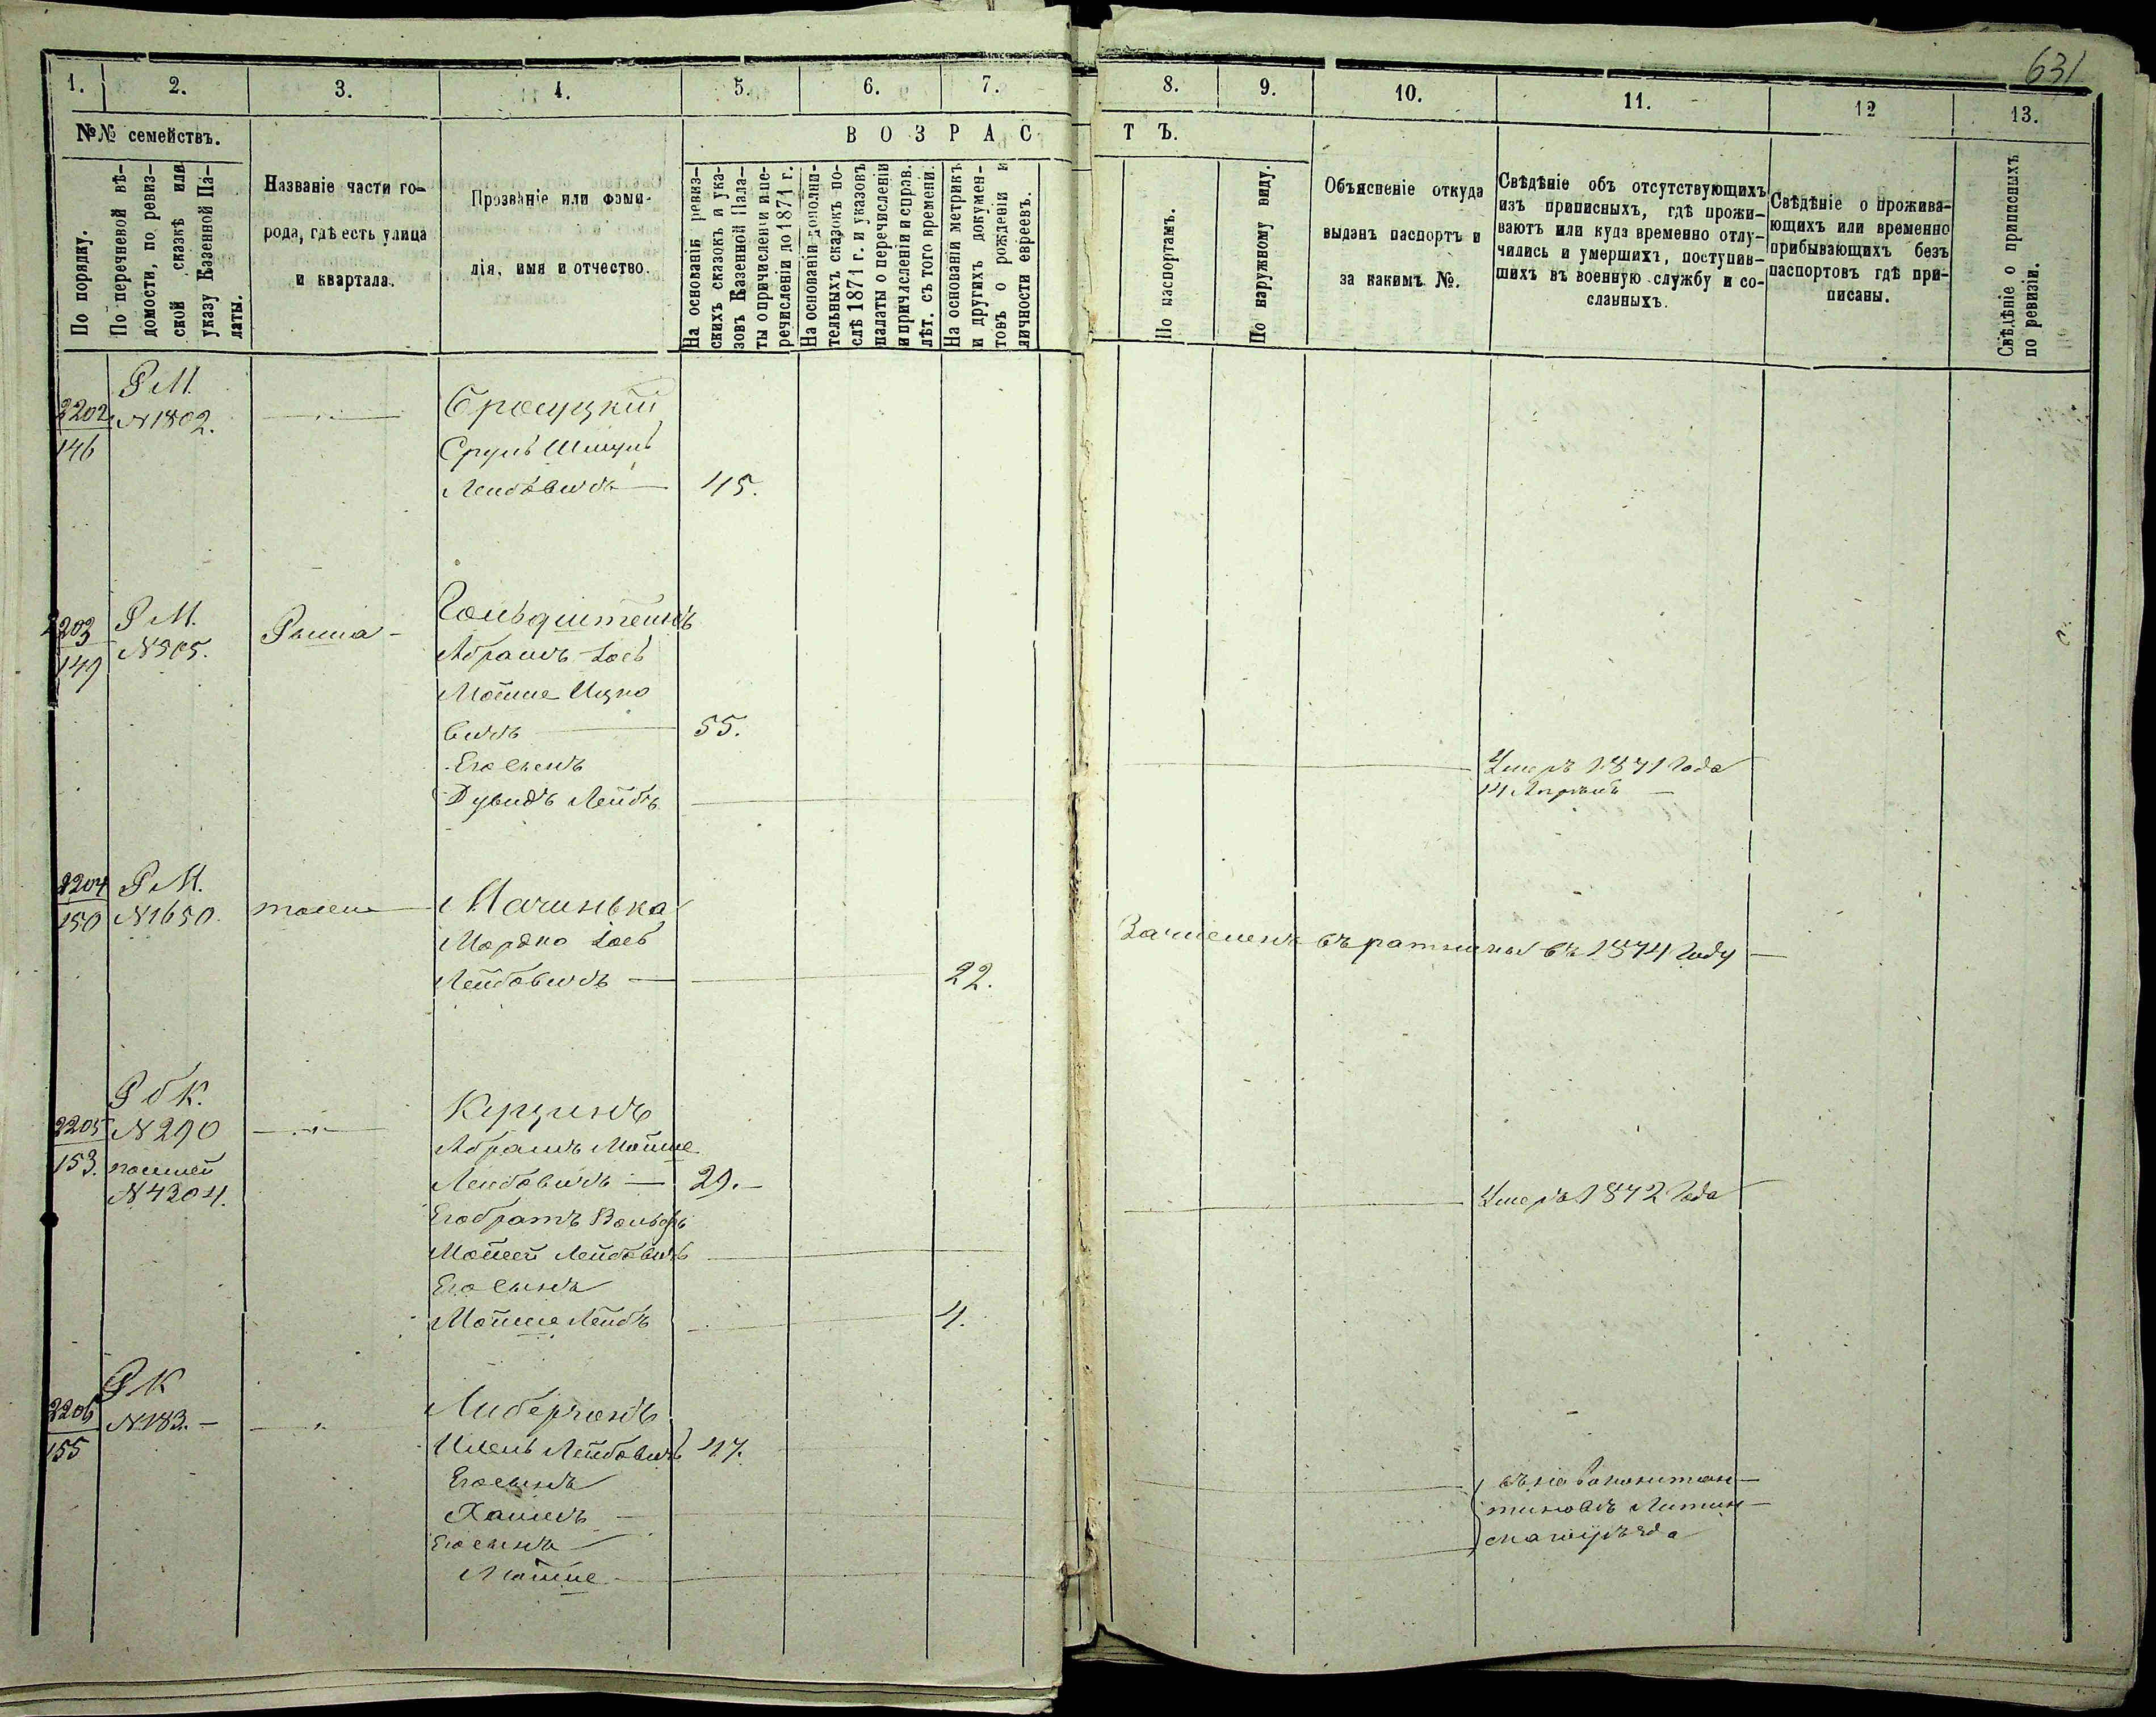 631
1.
2.
3.
4.
5.
6.
7.
8.
9.
10.
11.
12
13.
№№ семействъ.
По порядку.
По перечневой вѣ-
домости, по ревиз-
ской сказкѣ или
указу Казенной Па-
латы.
Названіе части го-
рода, гдѣ есть улица
и квартала.
Прозваніе или фами-
лія, имя и отчество.
ВОЗРАСТЪ.
На основаніи ревиз-
скихъ сказокъ и ука-
зовъ Казенной Пала-
ты о причисленіи и пе-
речисленіи до 1871 г.
На основаніи дополни-
тельныхъ сказокъ по-
слѣ 1871 г. и указовъ
палаты о перечисленіи
и причисленіи и справ.
лѣт. съ того времени.
На основаніи метрикъ
и другихъ докумен-
товъ о рожденіи и
личности евреевъ.
По паспортамъ.
По наружному виду.
Объясненіе откуда
выданъ паспортъ и
за какимъ №.
Свѣдѣніе объ отсутствующихъ
изъ приписныхъ, гдѣ прожи-
ваютъ или куда временно отлу-
чились и умершихъ, поступив-
шихъ въ военную службу и со-
сланныхъ.
Свѣдѣніе о прожива-
ющихъ или временно
прибывающихъ безъ
паспортовъ гдѣ при-
писаны.
Свѣдѣніе о приписныхъ
по ревизіи.
2202
146
Р М.
N 1802.
Сруль Шмуль
Лейбовичъ — 45.
2203
149
Р М.
N 505.
Гольдштейнъ
Абрамъ Іось
Мошше Ицко
вичъ — 55.
Его сынъ
Дувидъ Лейбъ
Умеръ 1871 года
14 Апрѣль
2204
150
Р М.
N 1650.
тоже
Мачинька
Мордко Іось
Лейбовичъ — 22.
Зачисленъ въ ратники въ 1874 году
2205
153.
Р б К.
N 290
N 4204.
Абрамъ Мошше
Лейбовичъ — 29.
Его братъ Вольфъ
Мойсей Лейбовичъ
Умеръ 1872 года
Его сынъ
Мошше Лейбъ 4.
2206
155
Р К
N 183.
Либерзонъ
Лейбовичъ 47.
Его сынъ
Хаимъ
Его сынъ
Мошше